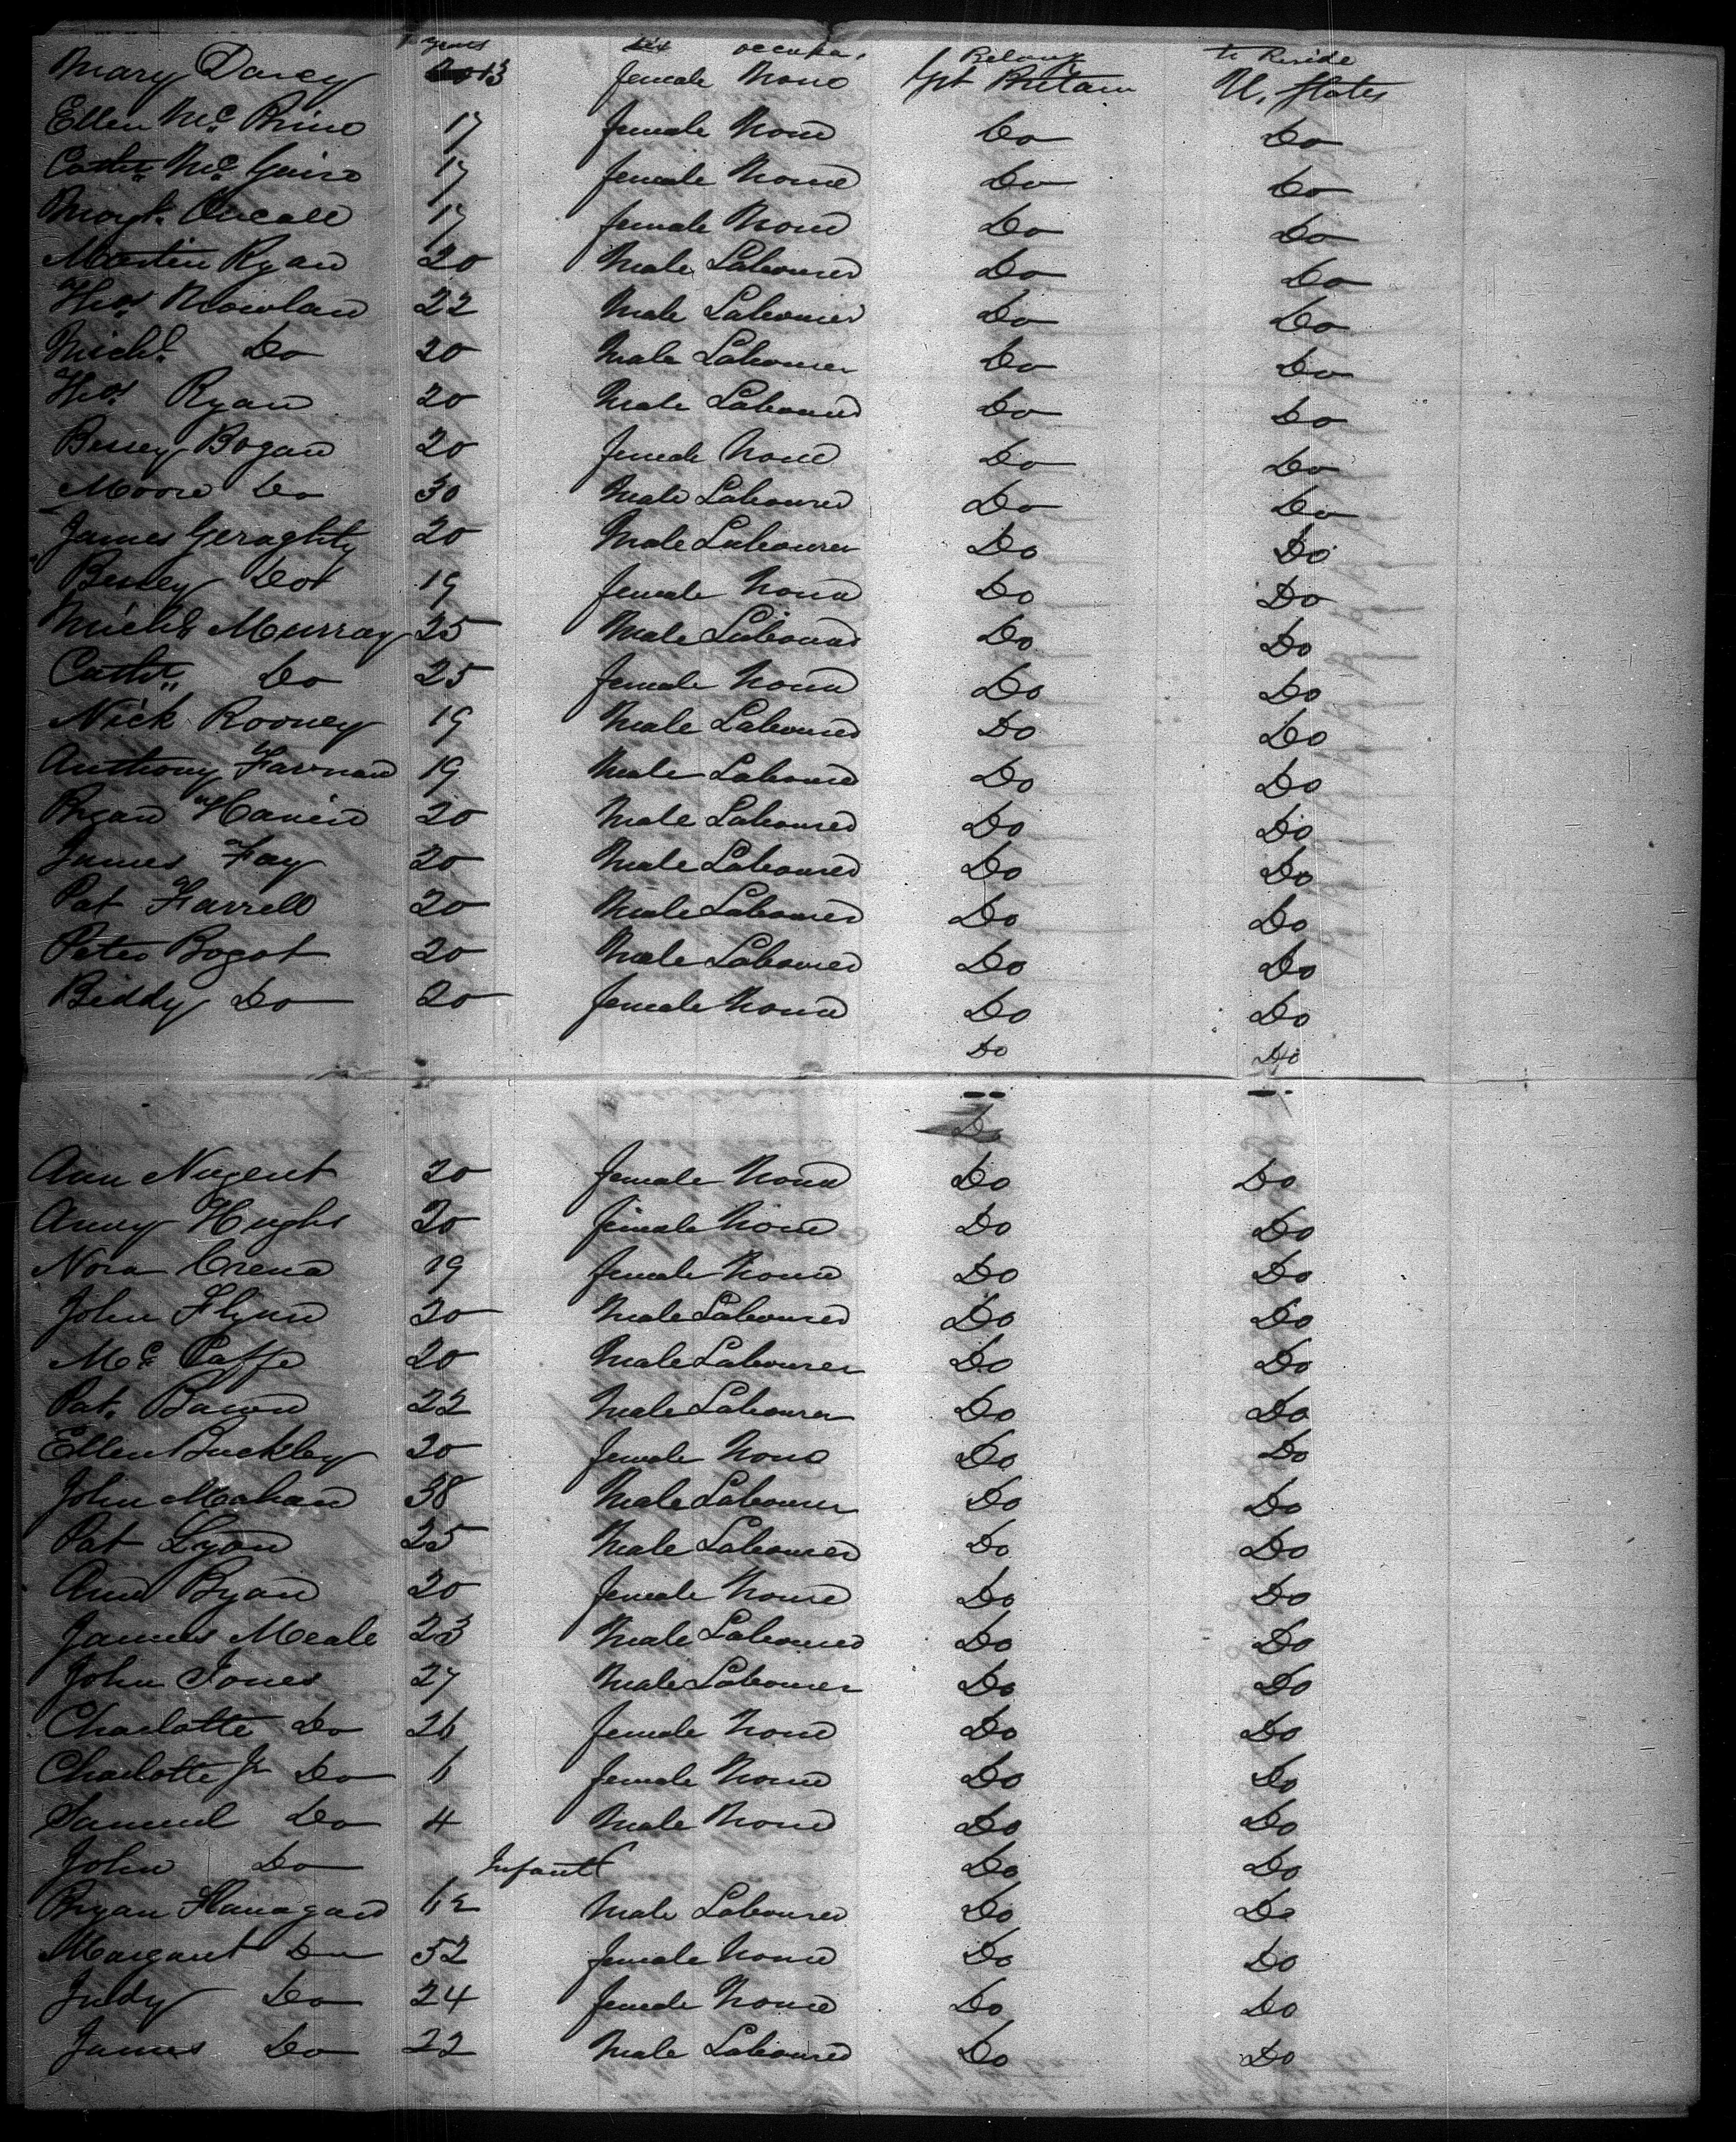 years sex occupa. Belong to Reside
Mary Darcy 13 female None Gt Britain U. States
Ellen Mc Brine 17 female None Do Do
Cathe. Mc Guire 17 female None Do Do
Margt. Oneall 17 female None Do Do
Martin Ryan 20 Male Labourer Do Do
Thos. Nowlan 22 Male Labourer Do Do
Michl. Do 20 Male Labourer Do Do
Thos. Ryan 20 Male Labourer Do Do
Bessey Bogan 20 female None Do Do
Moore Do 30 Male Labourer Do Do
James Geraghty 20 Male Labourer Do Do
Bessey Do 19 female None Do Do
Michl. Murray 25 Male Labourer Do Do
Cathe. Do 25 female None Do Do
Nick Rooney 19 Male Labourer Do Do
Anthony Farnan 19 Male Labourer Do Do
Bryan 20 Male Labourer Do Do
James Fay 20 Male Labourer Do Do
Pat Farrell 20 Male Labourer Do Do
Peter Bogot 20 Male Labourer Do Do
Biddy Do 20 female None Do Do
Do Do
Do
Ann Nugent 20 female None Do Do
Anny Hughs 20 female None Do Do
Nora Crena 19 female None Do Do
John Flynn 20 Male Labourer Do Do
Mc Caffe 20 Male Labourer Do Do
Pat. Bacon 22 Male Labourer Do Do
Ellen Buckley 20 female None Do Do
John Mahan 38 Male Labourer Do Do
Pat Lyon 25 Male Labourer Do Do
Ann Ryan 20 female None Do Do
James Meale 23 Male Labourer Do Do
John Jones 27 Male Labourer Do Do
Charlotte Do 26 female None Do Do
Charlotte Jr Do 6 female None Do Do
Samuel Do 4 Male None Do Do
John Do Infant Do Do
Bryan Flanagan 62 Male Labourer Do Do
Margaret Do 52 female None Do Do
Judy Do 24 female None Do Do
James Do 22 Male Labourer Do Do